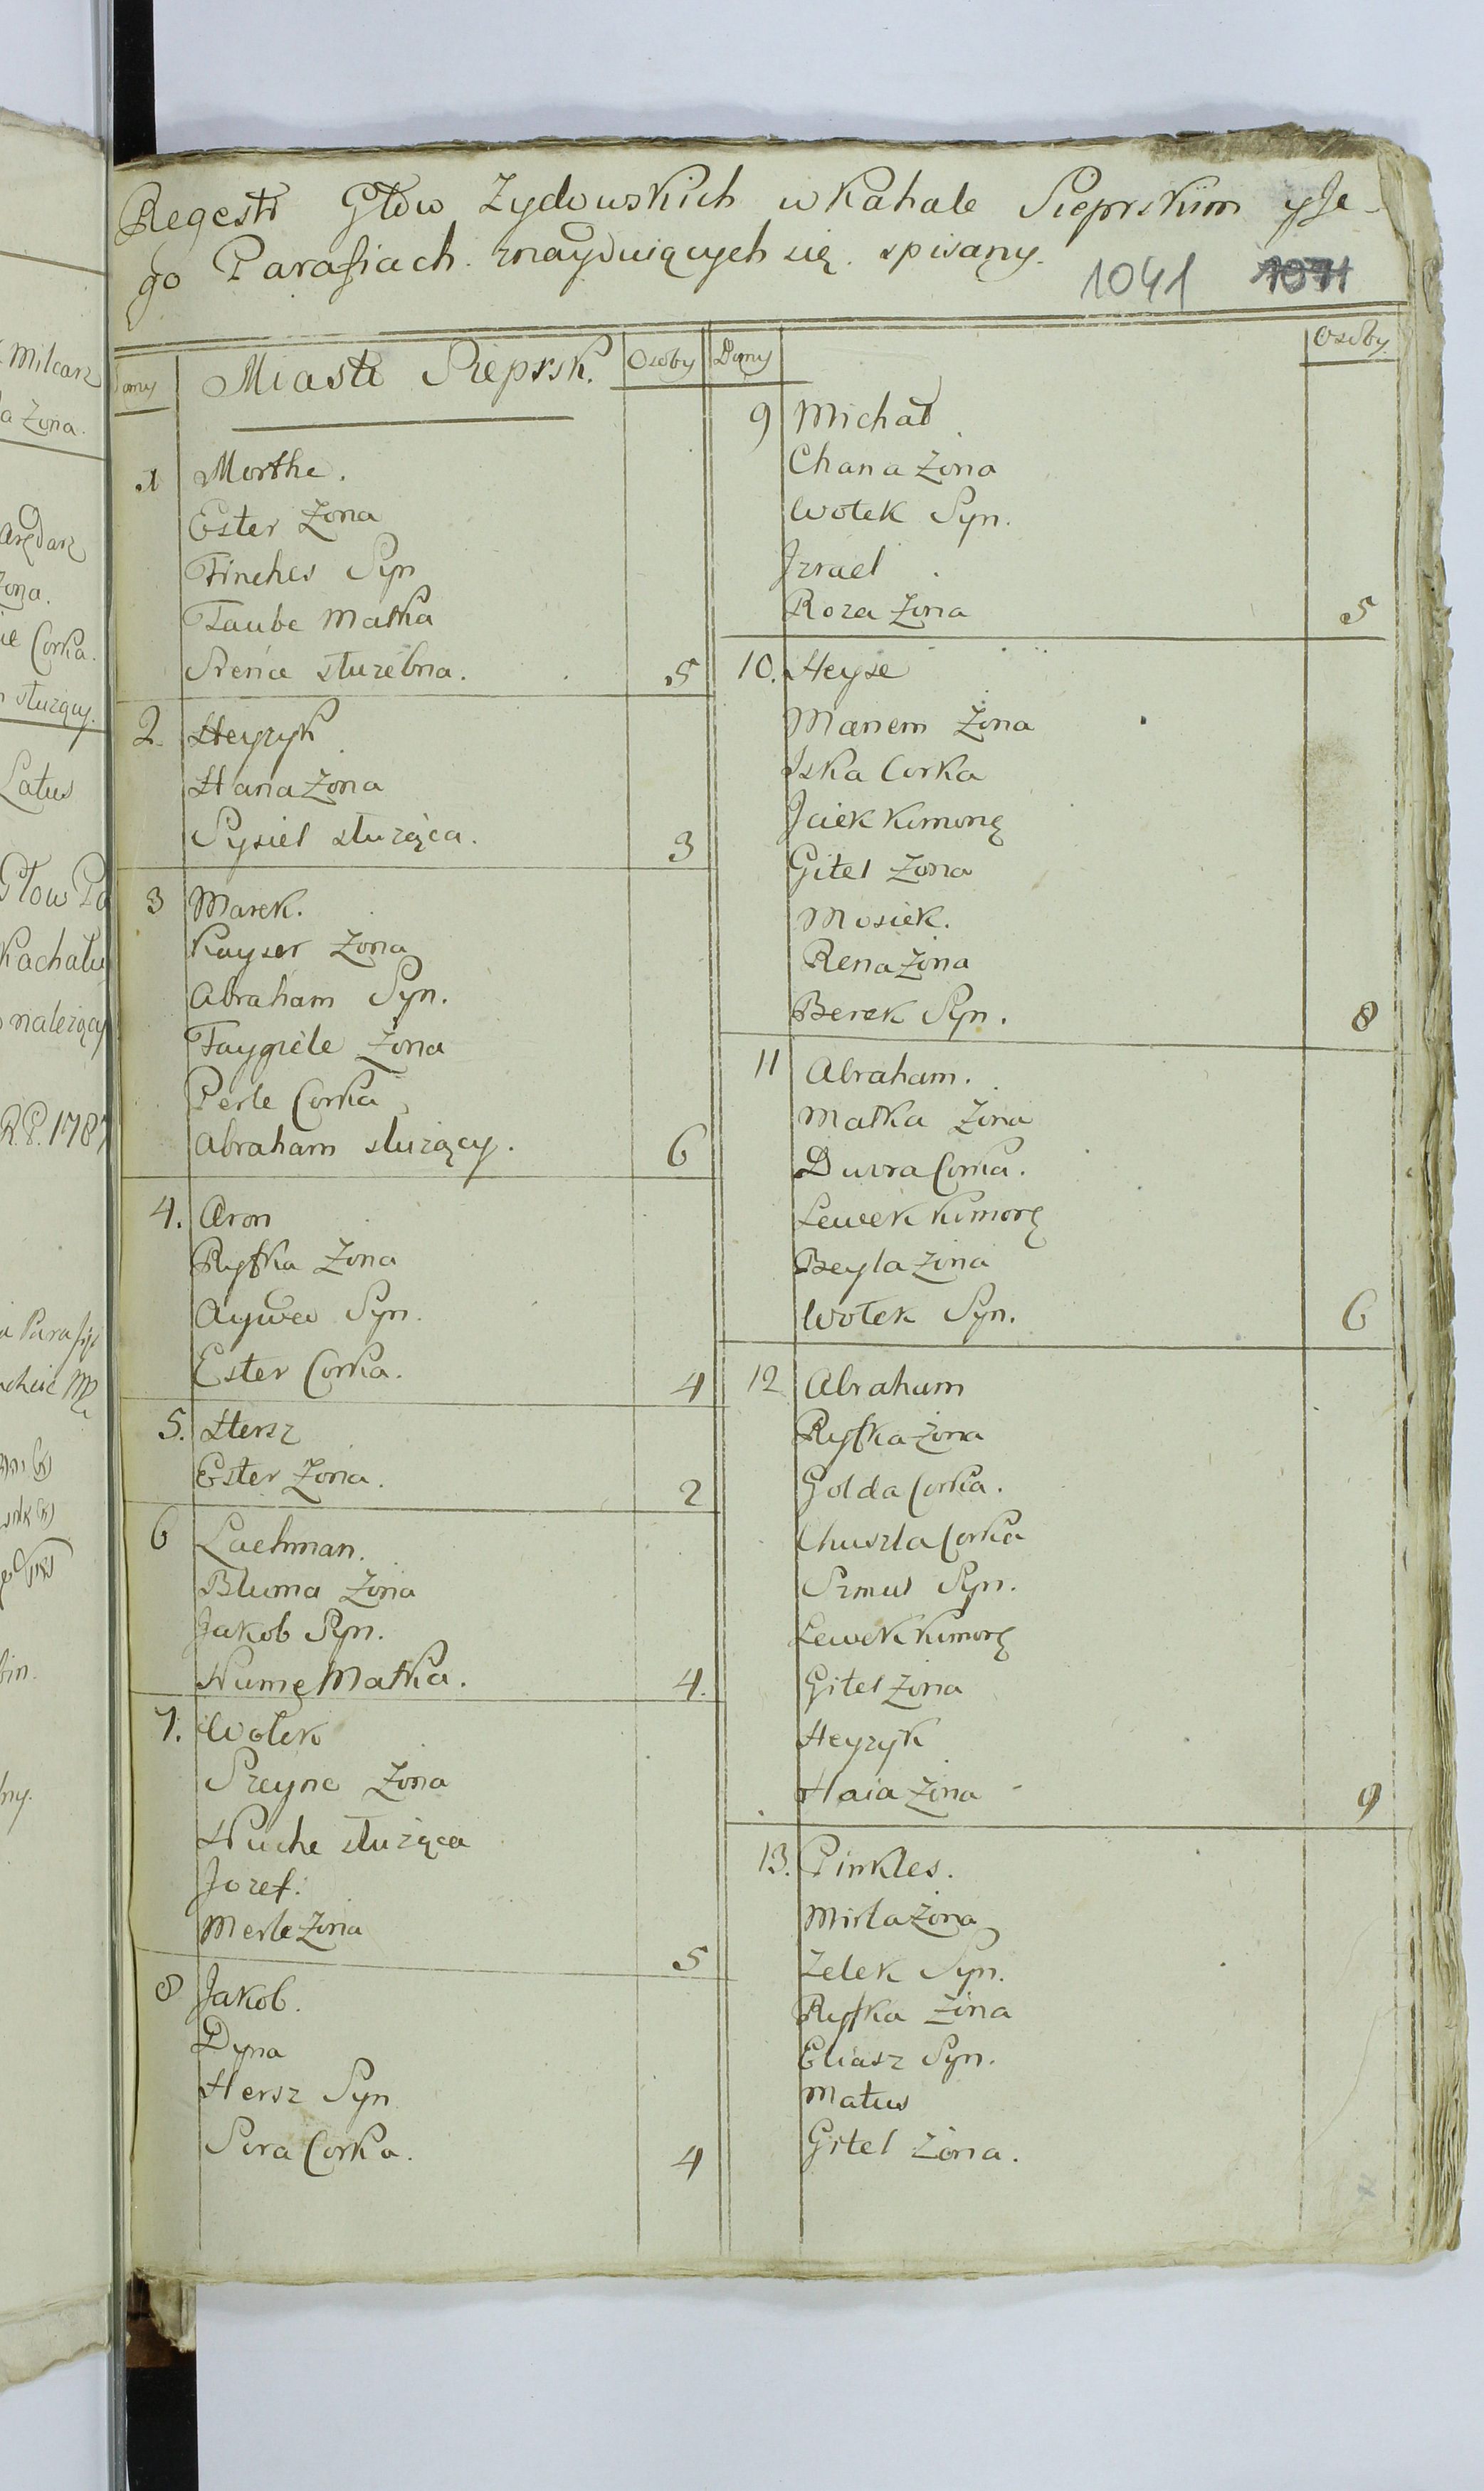 Regestr Głow Zydowskich w Kahale Sieprskim y Je-
go Parafiach znayduiących się spisany.
1041 1071
Domy Miasto Sieprsk. Osoby
1 Morthe.
Ester Zona
Finches Syn
Taube Matka
Srenia słuzebna. 5
2. Heyzyk
Hana Zona
Sysiel słuząca. 3
3 Marek.
Kayser Zona
Abraham Syn.
Faygiele Zona
Perle Corka
Abraham słuzący. 6
4. Aron
Ryfka Zona
Aywa Syn.
Ester Corka. 4
5. Hersz
Ester Zona. 2
6 Lachman.
Bluma Zona
Jakob Syn.
Nume Matka. 4.
7. Wołek
Szeyne Zona
Nuche słuząca
Jozef.
Merle Zona 5
8 Jakob.
Dyna
Hersz Syn
Sora Corka. 4
Domy Osoby
9 Michał
Chana Zona
Wołek Syn.
Jzrael
Roza Zona 5
10. Heyse
Manem Zona
Iska Corka
Jciek Komorę
Gitel Zona
Mosiek.
Rena Zona
Berek Syn. 8
11 Abraham.
Matka Zona
Duvra Corka.
Lewek Komorę
Beyla Zona
Wołek Syn. 6
12 Abraham
Ryfka Zona
Golda Corka.
Chuszla Corka
Szmul Syn.
Lewek Komorę
Gitel Zona
Heyzyk
Haia Zona 9
13. Pinkles.
Mirla Zona
Zelek Syn.
Ryfka Zona
Eliasz Syn.
Matus
Gitel Zona.
Milcarz
a Zona.
Arędarz
Zona.
Corka.
słuzący.
Latus
Głow Pa
Kachału
nalezący
R.P. 1787
a Parafiji